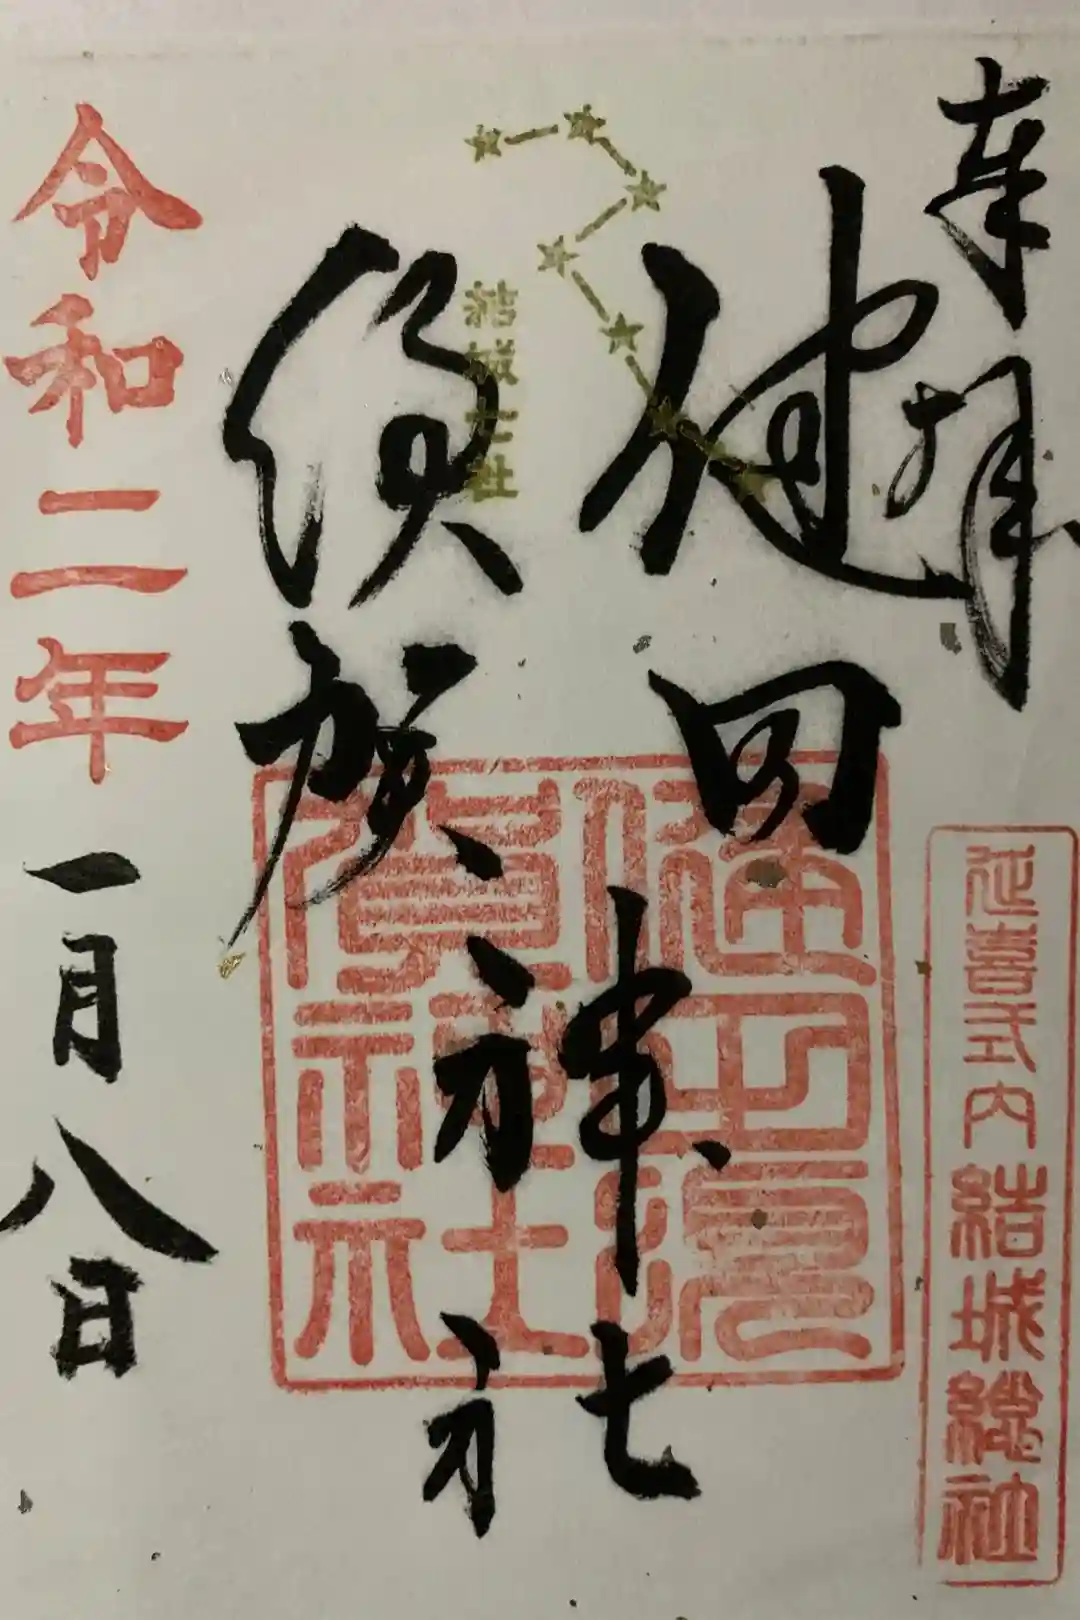 奉拝
延喜式内結城總社
健田
須賀
神社
七社
健田須
賀神社
結城七社
令和二年一月八日